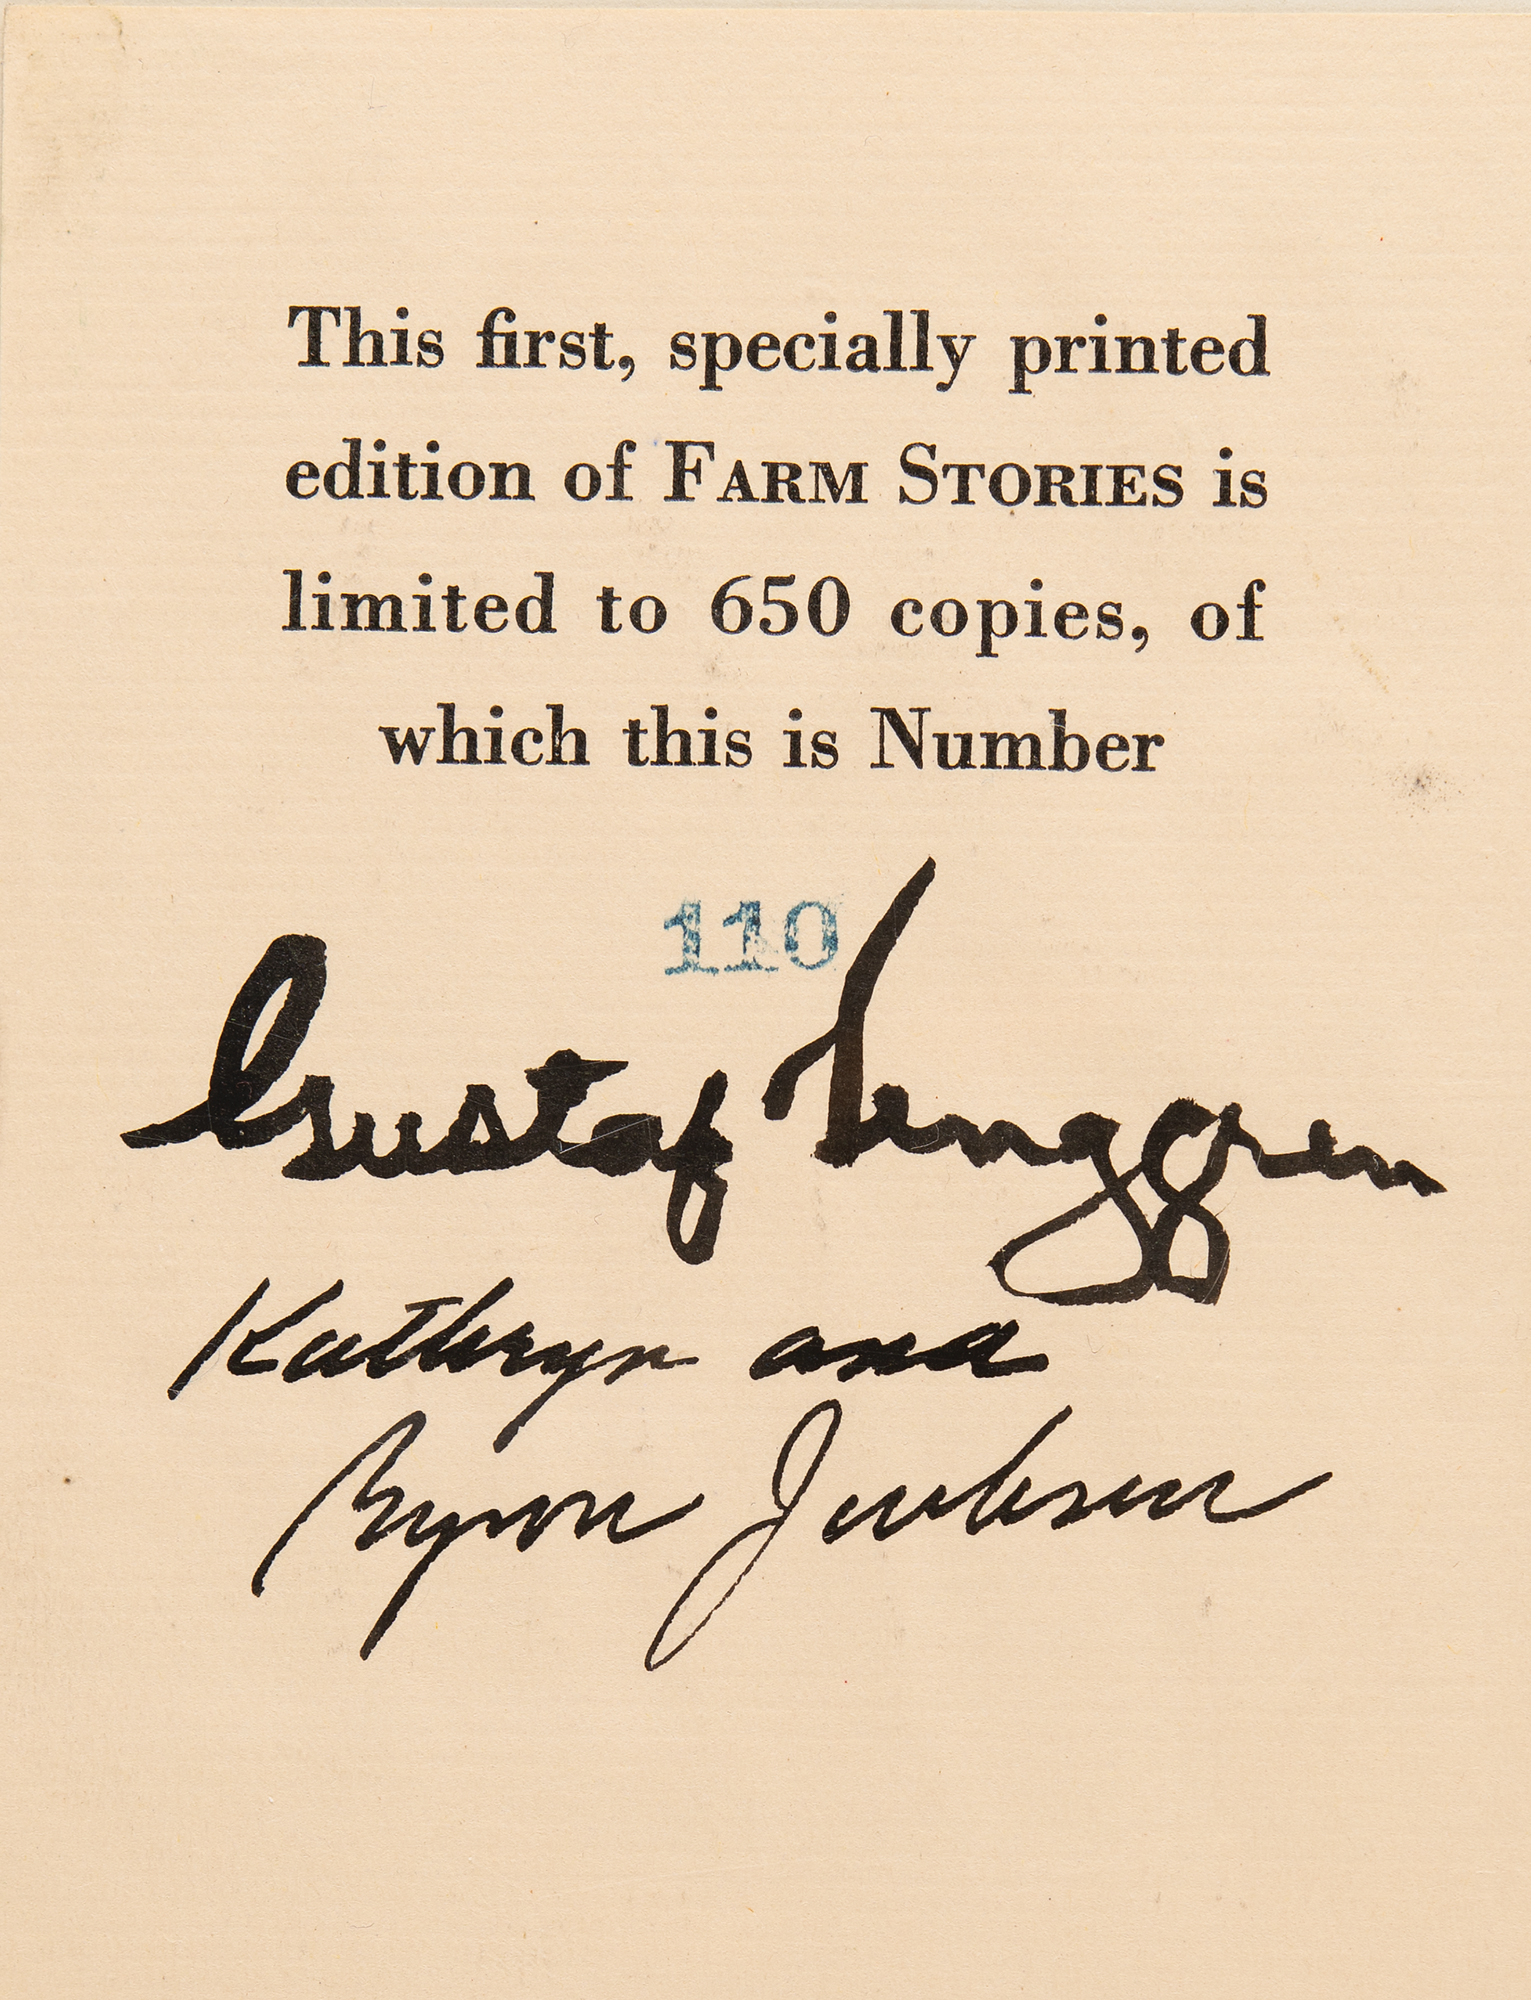 This first, specially printed
edition of FARM STORIES is
limited to 650 copies, of
which this is Number
110
Gustaf Tenggren
Kathryn and
Byron Jackson